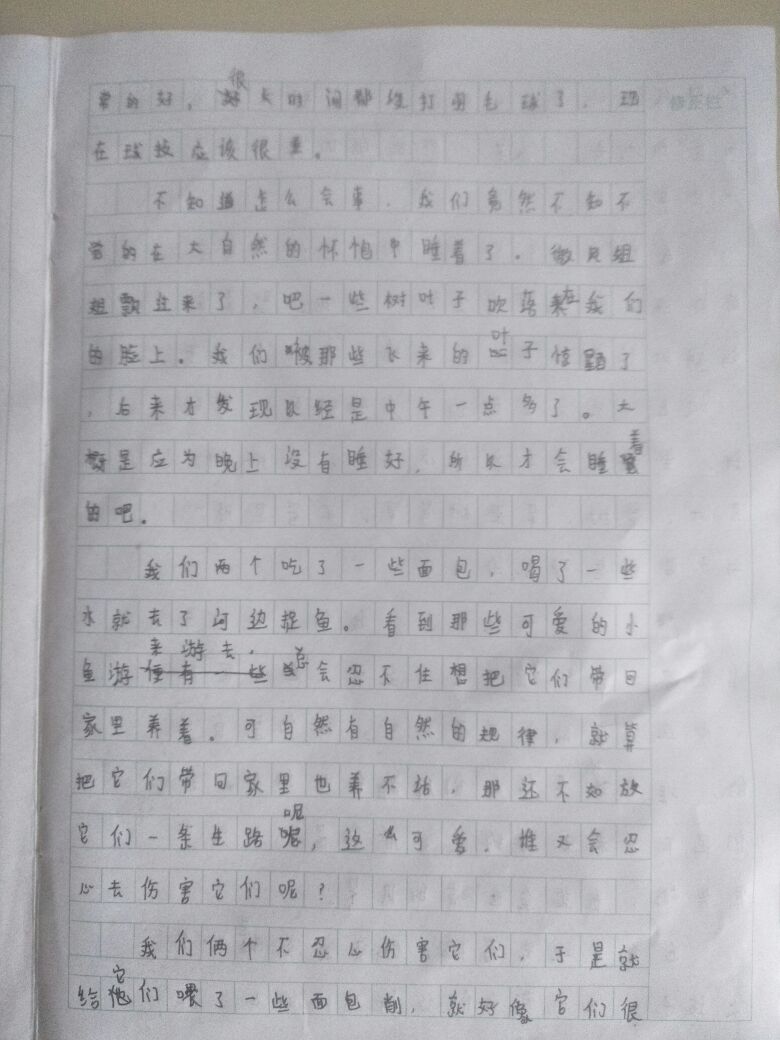 常的好，很长时间都没打羽毛球了，现
在球技应该很重。
不知道怎么会事，我们竟然不知不
觉的在大自然的怀抱中睡着了。微风姐
姐飘过来了，吧一些树叶子吹落在我们
的脸上。我们被那些飞来的叶子惊醒了
，后来才发现以经是中午一点多了。大
概是应为晚上没有睡好，所以才会睡着
的吧。
我们两个吃了一些面包，喝了一些
水就去了河边捉鱼。看到那些可爱的小
鱼游来游去，总会忍不住想把它们带回
家里养着。可自然有自然的规律，就算
把它们带回家里也养不活，那还不如放
它们一条生路呢，这么可爱，谁又会忍
心去伤害它们呢？
我们俩个不忍心伤害它们，于是就
给它们喂了一些面包削，就好像它们很